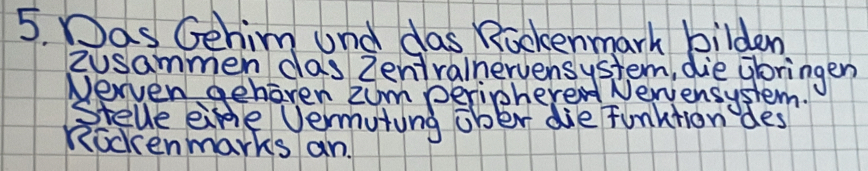 5. Das Gehirn und das Rückenmark bilden
zusammen das Zentralnervensystem, die übringen
Nerven gehören zum peripheren Nervensystem.
Stelle eine Vermutung über die Funktion des
Rückenmarks an.